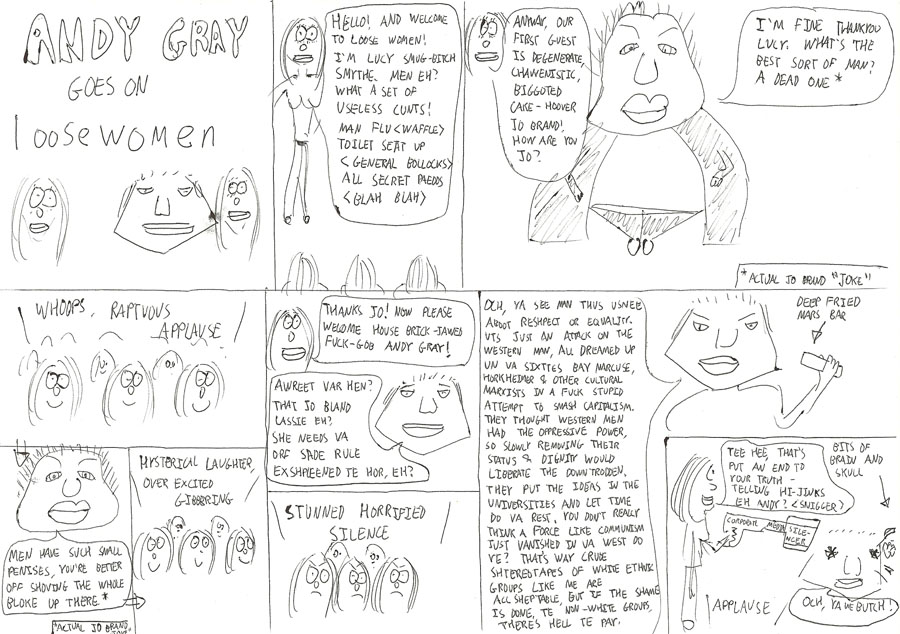 ANDY GRAY
GOES ON
loosewomen
HELLO! AND WELCOME
TO LOOSE WOMEN!
I'M LUCY SMUG-BITCH
SMYTHE. MEN EH?
WHAT A SET OF
USELESS CUNTS!
MAN FLU <WAFFLE>
TOILET SEAT UP
<GENERAL BOLLOCKS>
ALL SECRET PAEDOS
<BLAH BLAH>
ANYWAY, OUR
FIRST GUEST
IS DEGENERATE,
CHAWENISTIC,
BIGGOTED
CAKE-HOOVER
JO BRAND!
HOW ARE YOU
JO?
I'M FINE THANKYOU
LUCY. WHAT'S THE
BEST SORT OF MAN?
A DEAD ONE *
*ACTUAL JO BRAND "JOKE"
WHOOPS, RAPTUOUS
APPLAUSE
MEN HAVE SUCH SMALL
PENISES, YOU'RE BETTER
OFF SHOVING THE WHOLE
BLOKE UP THERE.*
*ACTUAL JO BRAND
HYSTERICAL LAUGHTER,
OVER EXCITED
GIBBERING
THANKS JO! NOW PLEASE
WELCOME HOUSE BRICK-JAWED
FUCK-GOB ANDY GRAY!
AWREET VAR HEN?
THAT JO BLAND
LASSIE EH?
SHE NEEDS VA
OFF SADE RULE
EXSHPLEENED TE HOR, EH?
STUNNED HORRIFIED
SILENCE
OCH, YA SEE MAN THUS USNEE
ABOOT RESHPECT OR EQUALITY.
UTS JUST AN ATTACK ON THE
WESTERN MAN, ALL DREAMED UP
UN VA SIXTIES BAY MARCUSE,
HORKHEIMER & OTHER CULTURAL
MARXISTS IN A FUCK STUPID
ATTEMPT TO SMASH CAPITALISM.
THEY THOUGHT WESTERN MEN
HAD THE OPPRESSIVE POWER,
SO SLOWLY REMOVING THEIR
STATUS & DIGNITY WOULD
LIBERATE THE DOWNTRODDEN.
THEY PUT THE IDEAS IN THE
UNIVERSITIES AND LET TIME
DO VA REST. YOU DON'T REALLY
THINK A FORCE LIKE COMMUNISM
JUST VANISHED IN VA WEST DO
YE? THAT'S WAY CRUDE
SHTEREOTAPES OF WHITE ETHNIC
GROUPS LIKE ME ARE
ALL SHEPTABLE, BUT IF THE SHAME
IS DONE, TE NON-WHITE GROUPS,
THERE'S HELL TE PAY.
DEEP FRIED
MARS BAR
TEE HEE, THAT'S
PUT AN END TO
YOUR TRUTH-
TELLING HI-JINKS
EH ANDY? <SNIGGER>
CORPORATE MEDIA
SILE-
NCER
BITS OF
BRAIN AND
SKULL
APPLAUSE
OCH, YA WE BUTCH!